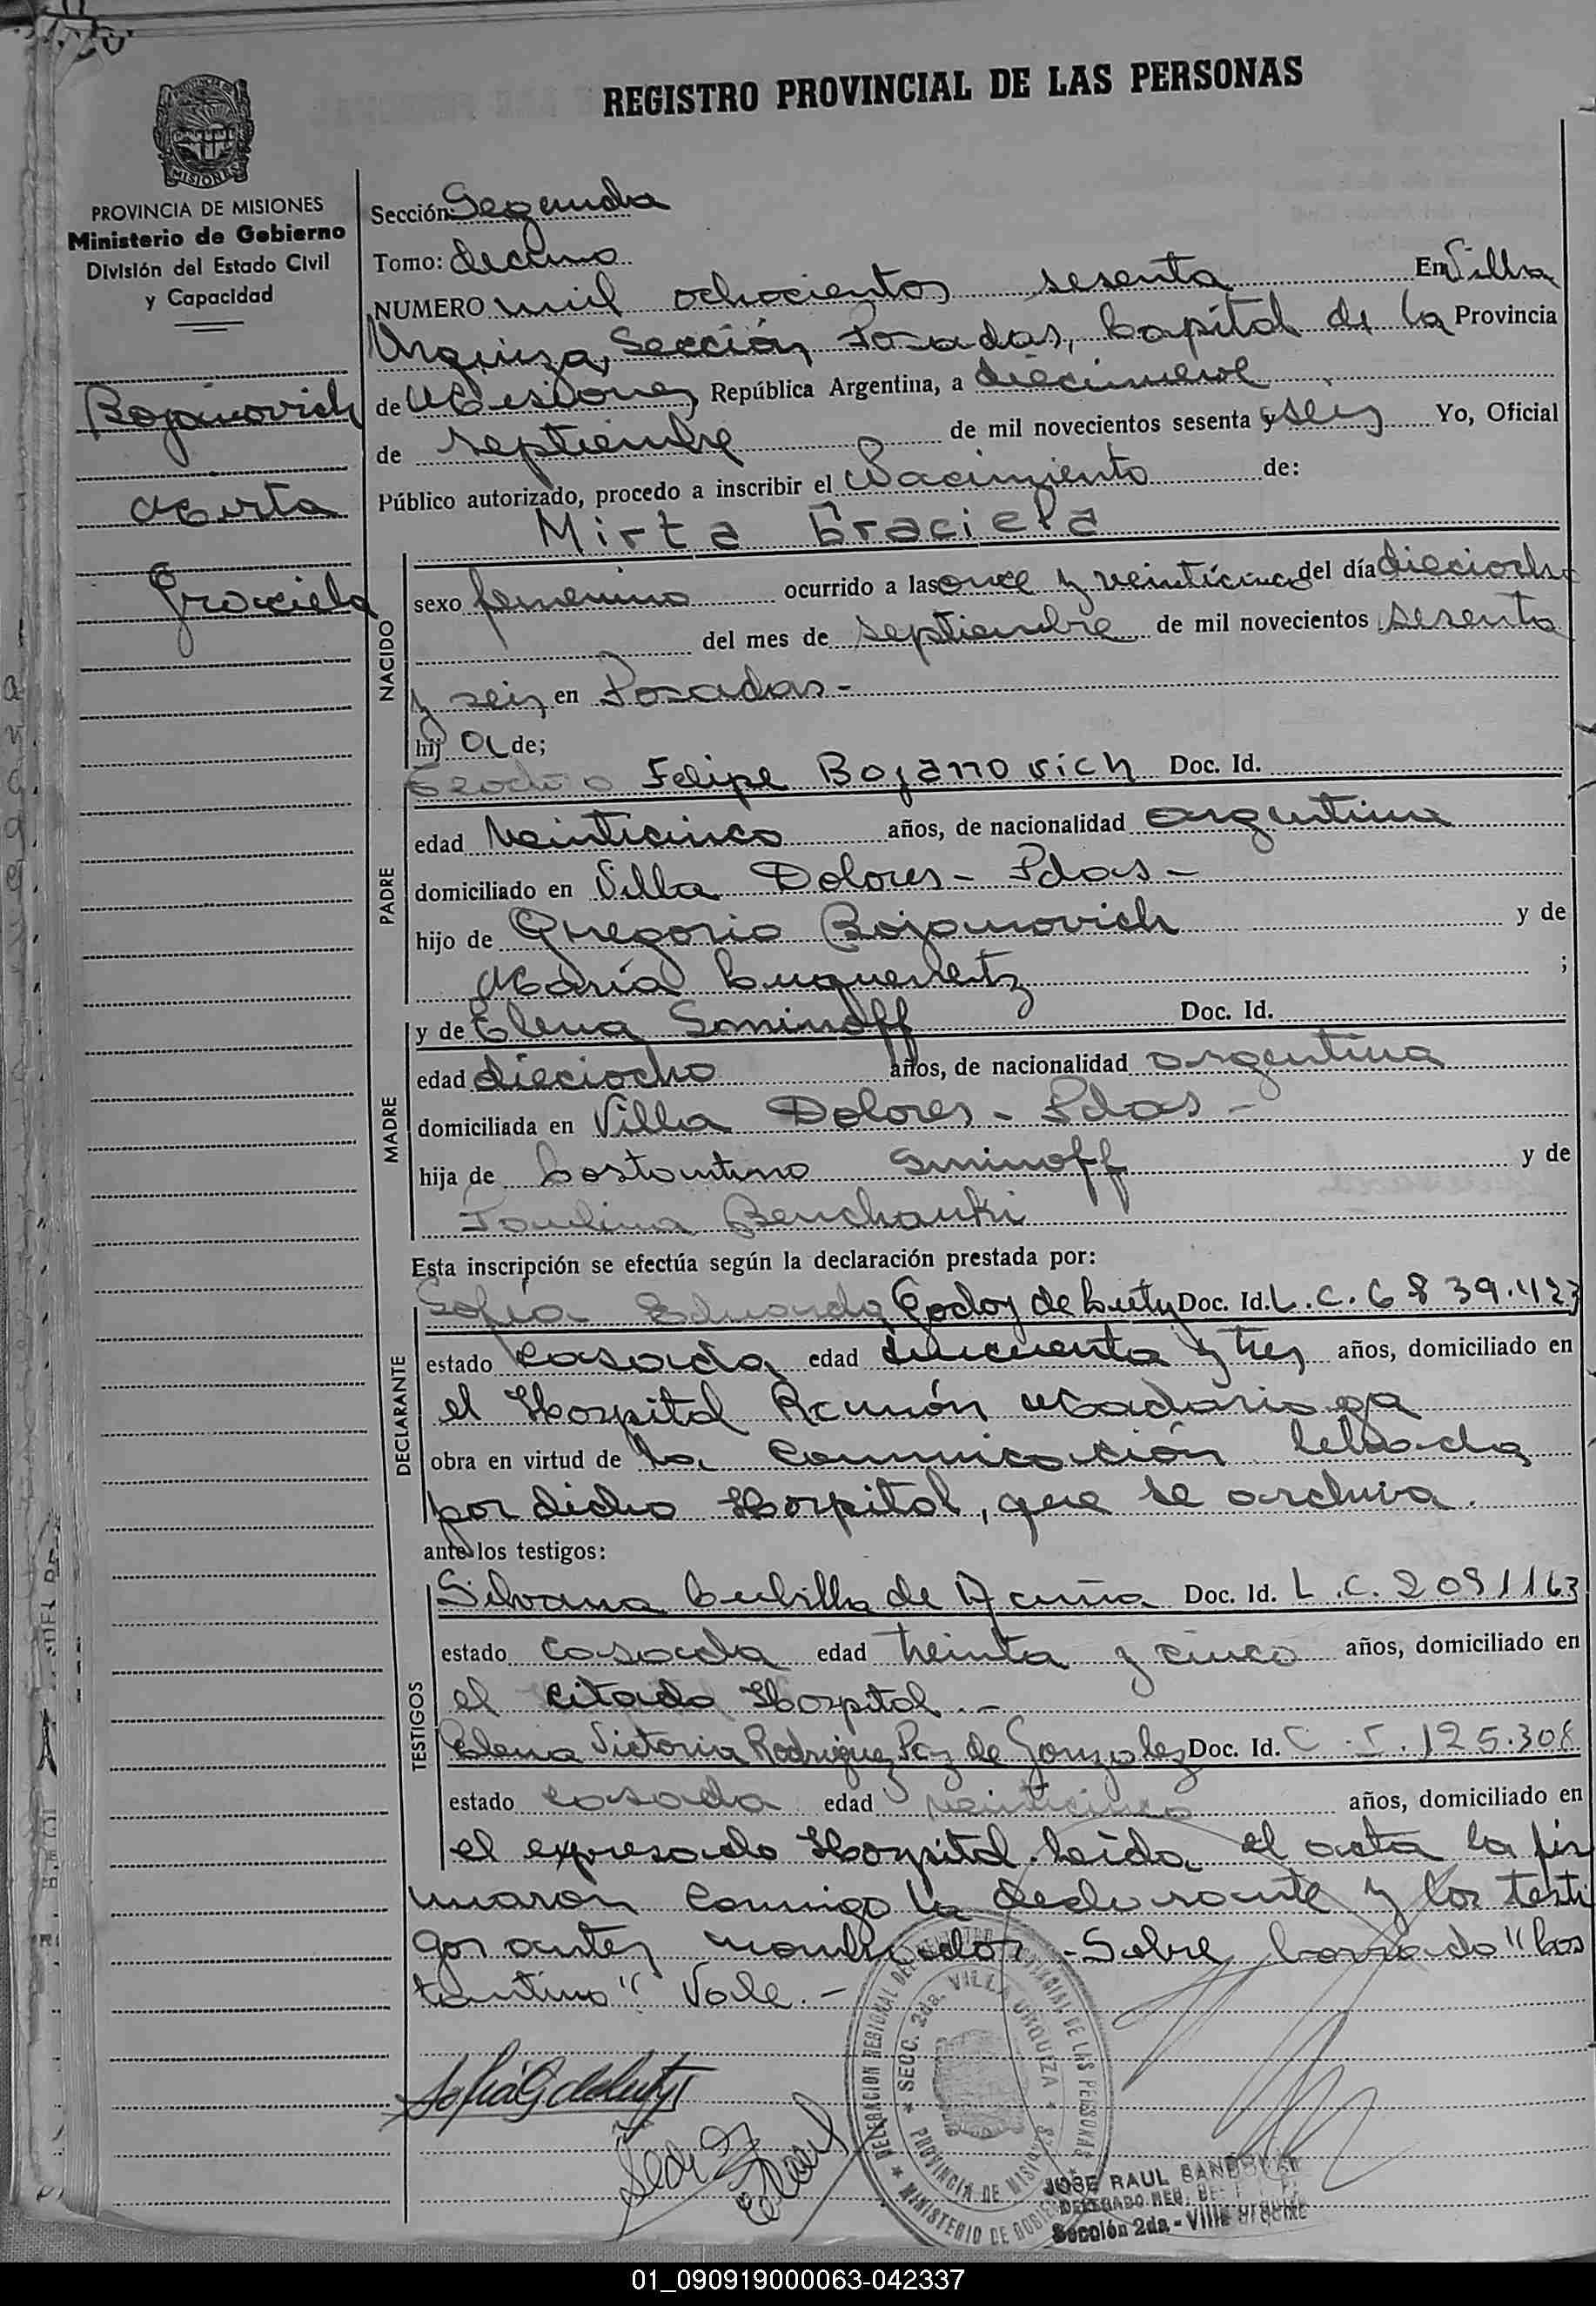 REGISTRO PROVINCIAL DE LAS PERSONAS
MISIONES
PROVINCIA DE MISIONES
Ministerio de Gobierno
División del Estado Civil
y Capacidad
Bojanovich
Mirta
Graciela
Sección: Segunda
Tomo: decimo
NUMERO mil ochocientos sesenta En Villa
Urquiza, Sección Posadas, Capital de la Provincia
de Misiones República Argentina, a diecinueve
de septiembre de mil novecientos sesenta y seis Yo, Oficial
Público autorizado, procedo a inscribir el Nacimiento de:
Mirta Graciela
NACIDO
sexo femenino ocurrido a las once y veinticinco del día dieciocho
del mes de septiembre de mil novecientos sesenta
y seis en Posadas-
hij a de;
PADRE
Felipe Bojanovich Doc. Id.
edad Veinticinco años, de nacionalidad argentina
domiciliado en Villa Dolores - Pdas -
hijo de Gregorio Bojanovich y de
María ;
MADRE
y de Elena Sminoff Doc. Id.
edad dieciocho años, de nacionalidad argentina
domiciliada en Villa Dolores - Pdas -
hija de Costantino Sminoff y de
Paulina Benchauki
Esta inscripción se efectúa según la declaración prestada por:
DECLARANTE
Sofía Eduarda Godoy de Doc. Id. L.C. 6839.423
estado Casada edad Cincuenta y tres años, domiciliado en
el Hospital Ramón Madariaga
obra en virtud de la Comunicación
por dicho Hospital, que se archiva.
ante los testigos:
TESTIGOS
Silvana Cubilla de Acuña Doc. Id. L.C. 2091163
estado Casada edad treinta y cinco años, domiciliado en
el citado Hospital.-
Elena Victoria Rodriguez Paz de Gonzalez Doc. Id. C.I. 125.308
estado casada edad veinticinco años, domiciliado en
el expresado Hospital. Leída el acta la fir
maron Conmigo la declarante y los testi
gos antes nombrados.- Sobre borrado "Cos
tantino" Vale.-
DELEGACION REGIONAL DEL REGISTRO PROVINCIAL DE LAS PERSONAS
SECC. 2da. VILLA URQUIZA
PROVINCIA DE MISIONES
MINISTERIO DE GOBIERNO
JOSE RAUL SANDOVAL
DELEGADO REG.
Sección 2da - Villa Urquiza
01_090919000063-042337